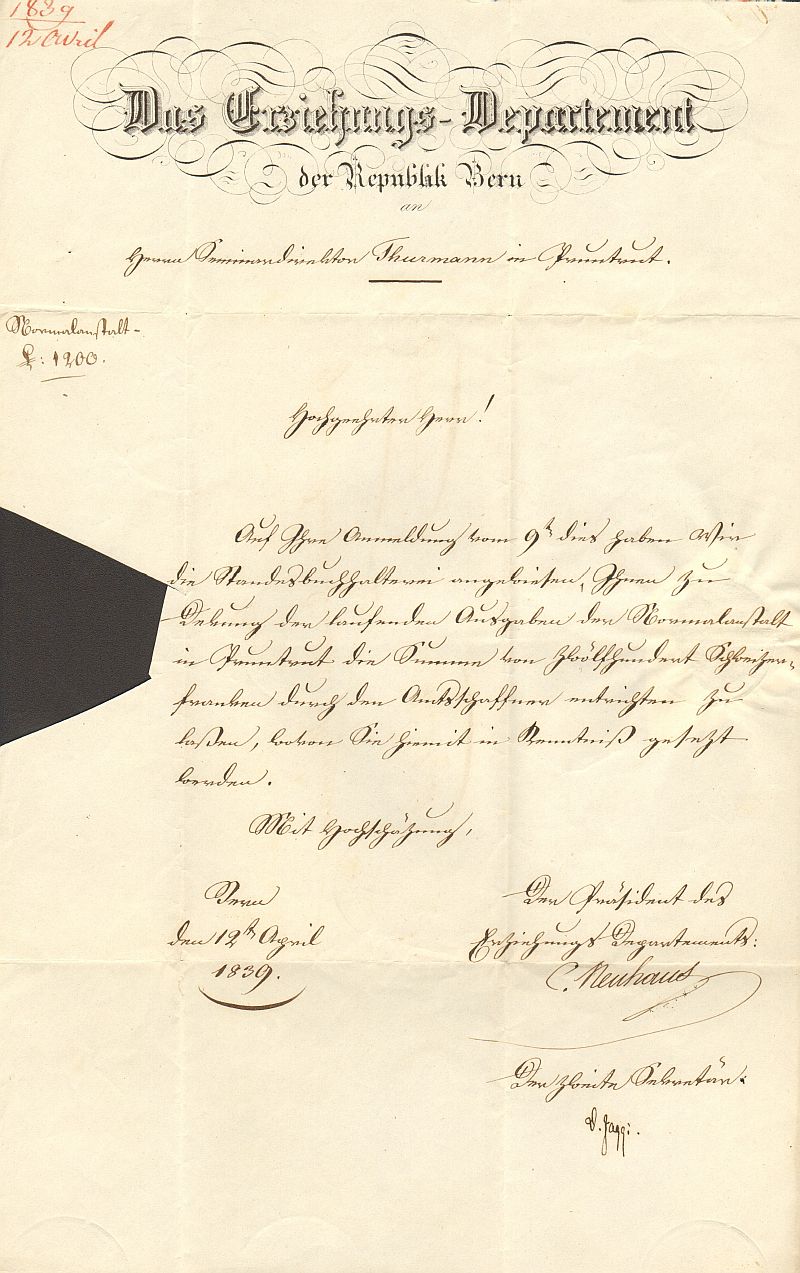 1839
12 Avril
Das Erziehungs-Departement
der Republik Bern
an
Herrn Seminardirektor Thurmann in Pruntrut.
Normalanstalt-
L: 1200.
Hochgeehrter Herr!
Auf Ihre Anmeldung vom 9t dies haben Wir
die Standesbuchhalterei angewiesen, Ihnen zu
Dekung der laufenden Ausgaben der Normalanstalt
in Pruntrut die Summe von zwölfhundert Schweizer-
franken durch den Amtsschaffner entrichten zu
laßen, wovon Sie hiemit in Kenntniß gesezt
werden.
Mit Hochschäzung,
Bern
den 12t April
1839.
Der Präsident des
Erziehungs Departements:
C. Neuhaus
Der zweite Sekretär:
Jaggi.